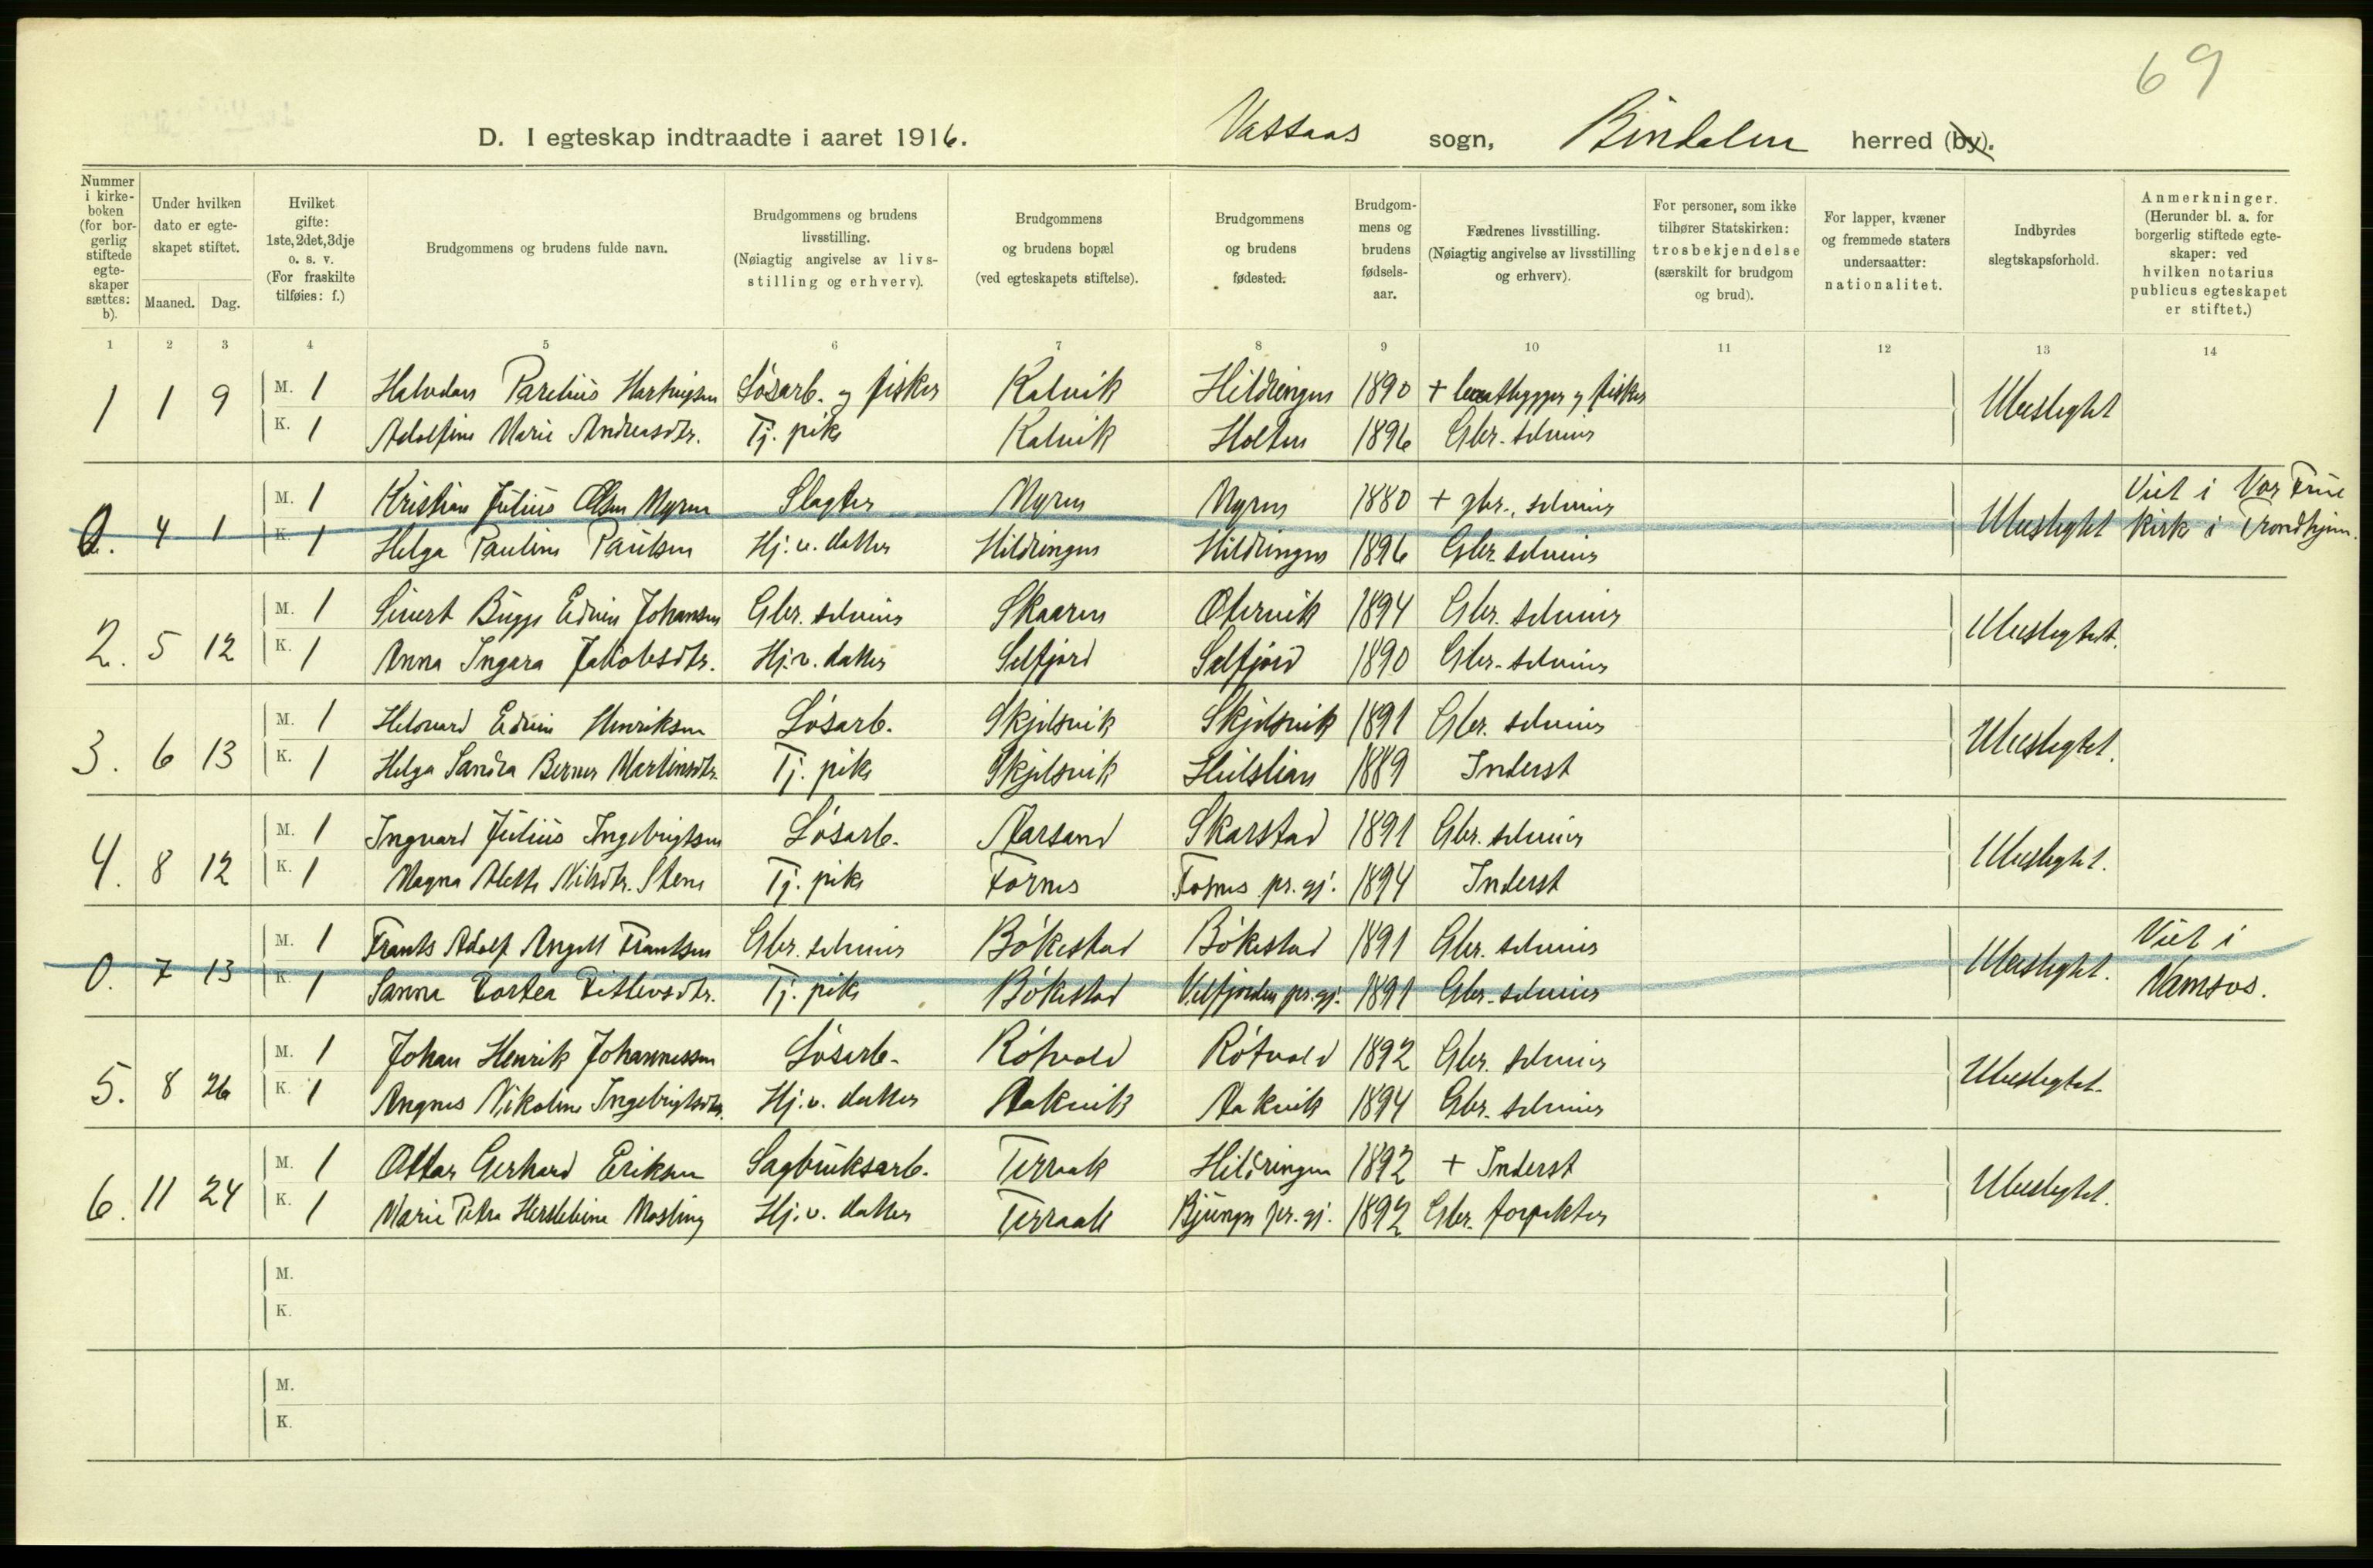 69
D. I egteskap indtraadte i aaret 1916. Vassaas sogn, Bindalen herred (by).
Nummer i kirke-boken (for bor-gerlig stiftede egte-skaper sættes: b).
Under hvilken dato er egte-skapet stiftet.
Maaned. Dag.
Hvilket gifte: 1ste, 2det, 3dje o. s. v. (For fraskilte tilføies: f.)
Brudgommens og brudens fulde navn.
Brudgommens og brudens livsstilling. (Nøiagtig angivelse av livs-stilling og erhverv).
Brudgommens og brudens bopæl (ved egteskapets stiftelse).
Brudgommens og brudens fødested.
Brudgom-mens og brudens fødsels-aar.
Fædrenes livsstilling. (Nøiagtig angivelse av livsstilling og erhverv).
For personer, som ikke tilhører Statskirken: trosbekjendelse (særskilt for brudgom og brud).
For lapper, kvæner og fremmede staters undersaatter: nationalitet.
Indbyrdes slegtskapsforhold.
Anmerkninger. (Herunder bl. a. for borgerlig stiftede egte-skaper: ved hvilken notarius publicus egteskapet er stiftet.)
1 2 3 4 5 6 7 8 9 10 11 12 13 14
1 1 9 M. 1 Halvdan Parelius Hartvigsen Løsarb. og fisker Kalvik Hildringen 1890 + og fisker Ubeslegtet
K. 1 Adolfine Marie Andreasdtr. Tj. pike Kalvik Holten 1896 Gbr. selveier
0. 4 1 M. 1 Kristian Julius Olsen Myren Slagter Myren Myren 1880 + gbr., selveier Ubeslegtet Viet i Vor Frue kirke i Trondhjem.
K. 1 Helga Pauline Paulsen Hj.v. datter Hildringen Hildringen 1896 Gbr. selveier
2. 5 12 M. 1 Sivert Bugge Edvin Johansen Gbr. selveier Skaaren Otervik 1894 Gbr. selveier Ubeslegtet.
K. 1 Anna Ingara Jakobsdtr. Hj.v. datter Selfjord Selfjord 1890 Gbr. selveier
3. 6 13 M. 1 Edvin Henriksen Løsarb. Skjelsvik Skjelsvik 1891 Gbr. selveier Ubeslegtet.
K. 1 Helga Sandra Berner Martinsdtr. Tj. pike Skjelsvik 1889 Inderst
4. 8 12 M. 1 Ingvard Julius Ingebrigtsen Løsarb. Aarsand Skarstad 1891 Gbr. selveier Ubeslegtet.
K. 1 Magna Alette Nilsdtr. Stene Tj. pike Tornes pr. gj. 1894 Inderst
0. 7 13 M. 1 Frants Adolf Angell Frantsen Gbr. selveier Bøkestad Bøkestad 1891 Gbr. selveier Ubeslegtet. Viet i Namsos.
K. 1 Sanna Dortea Ditlevsdtr. Tj. pike Bøkestad Velfjorden pr. gj. 1891 Gbr. selveier
5. 8 26 M. 1 Johan Henrik Johannessen Løsarb. Røtvold Røtvold 1892 Gbr. selveier Ubeslegtet.
K. 1 Angnes Nikoline Ingebrigtsdtr. Hj.v. datter Aakvik Aakvik 1894 Gbr. selveier
6. 11 24 M. 1 Ottar Gerhard Eriksen Sagbruksarb. Terraak Hildringen 1892 + Inderst Ubeslegtet.
K. 1 Marie Petra Herslebine Mosling Hj.v. datter Terraak Bjugn pr. gj. 1892 Gbr. forpakter
M.
K.
M.
K.